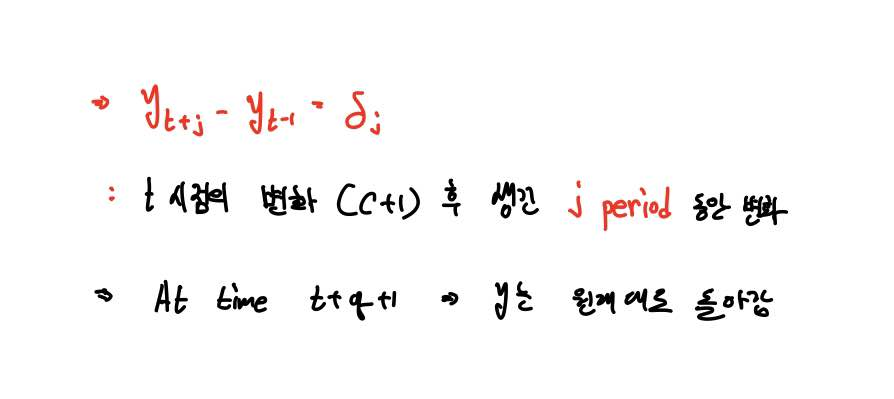 ⇒ y_{t+j} - y_{t-1} = δ_j
: t 시점의 변화 (C+1) 후 생긴 j period 동안 변화
⇒ At time t+q+1 ⇒ y는 원래대로 돌아감